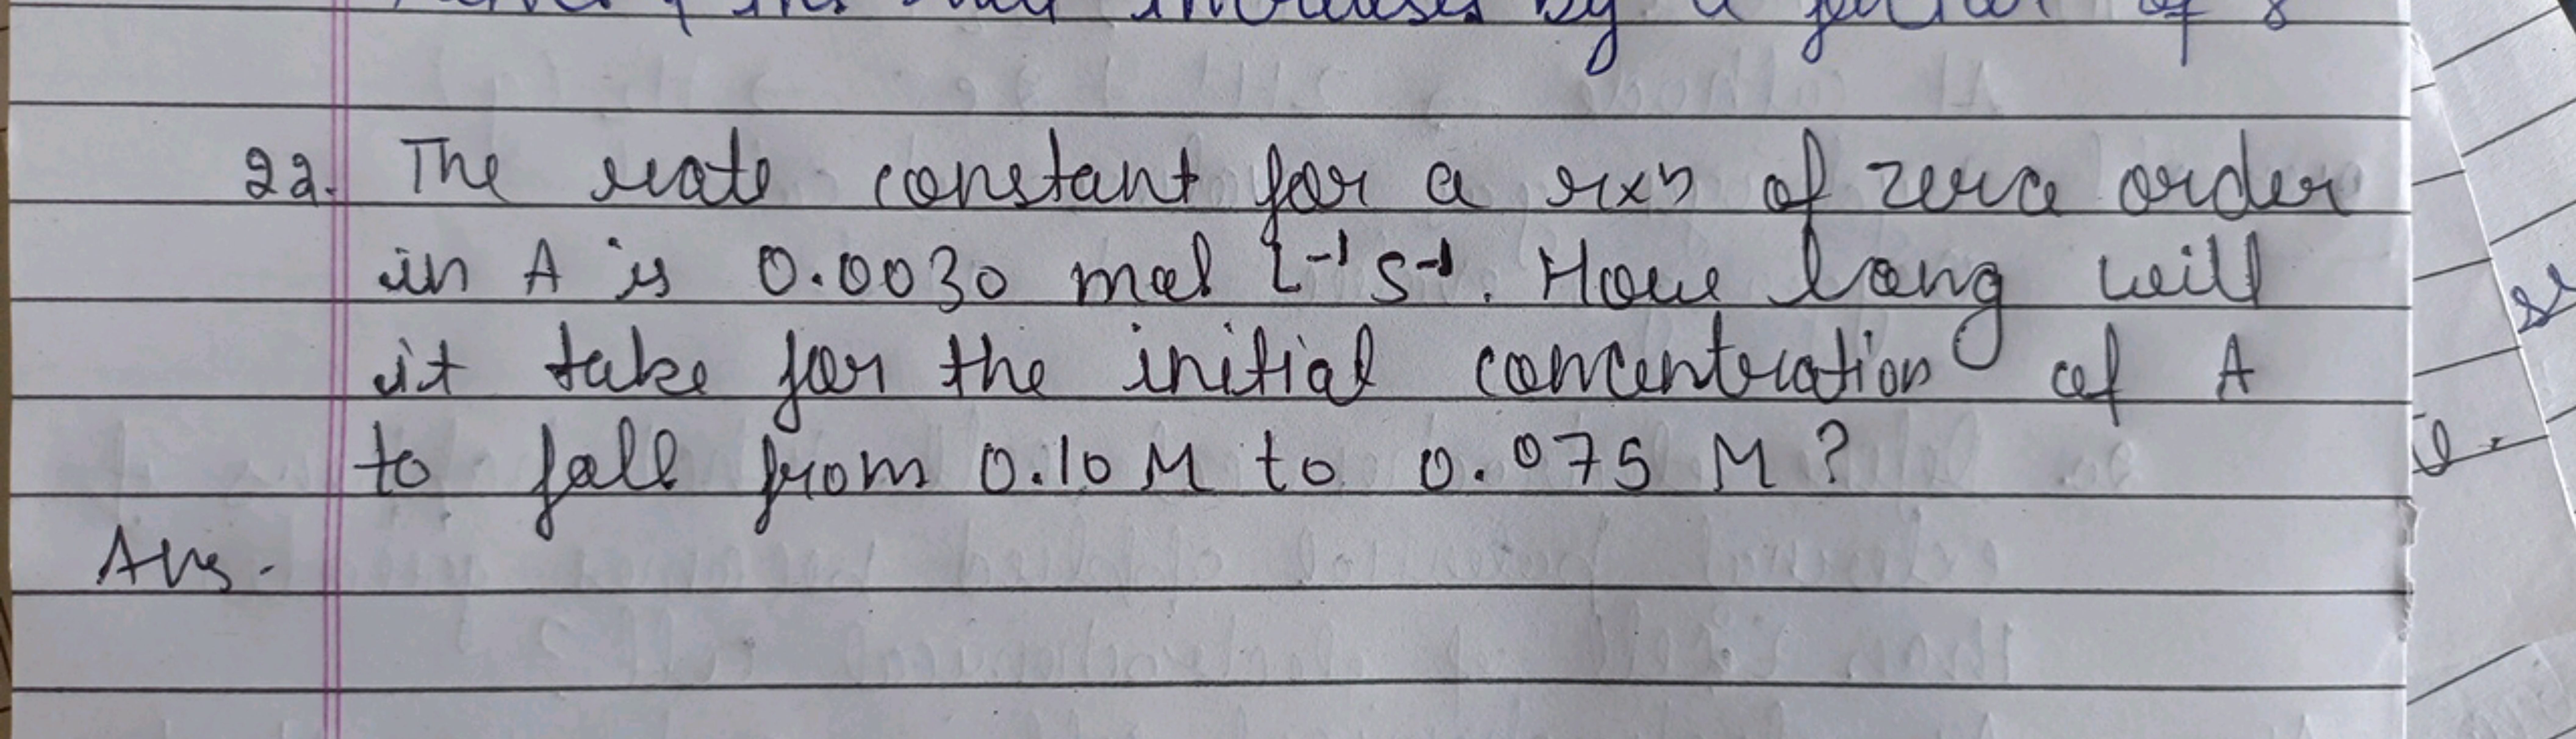 increases by a factor of 8
22. The rate constant for a rxn of zero order
in A is 0.0030 mol L⁻¹ S⁻¹. How long will
it take for the initial concentration of A
to fall from 0.10 M to 0.075 M?
Ans.